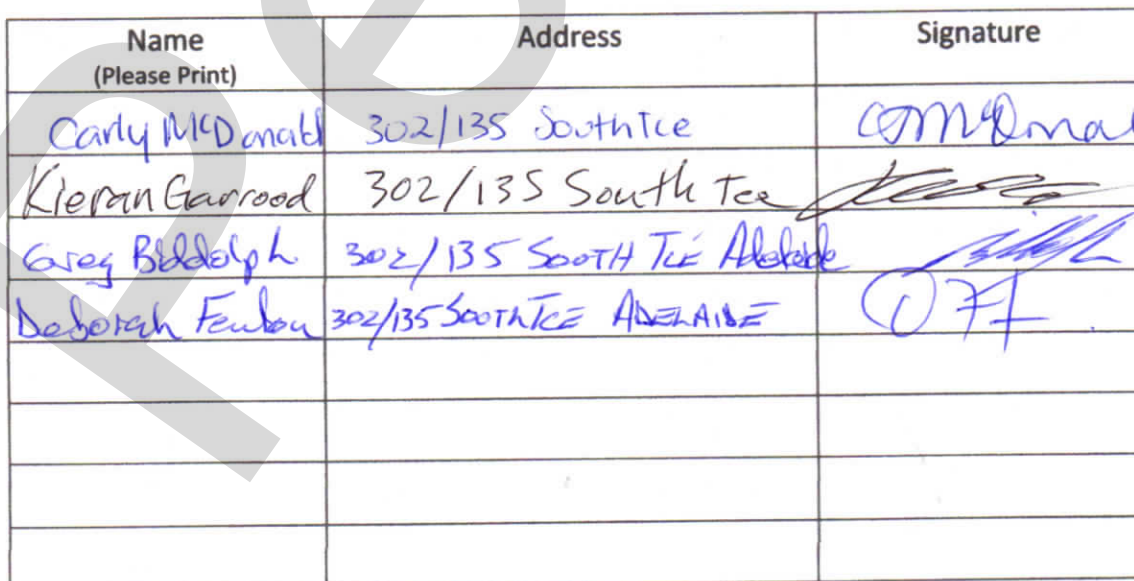 Name Address Signature
(Please Print)
Carly McDonald 302/135 South Tce
Kieran Garrood 302/135 South Tce
Greg Biddolph 302/135 SOUTH TCE Adelaide
Deborah Fenton 302/135 SOUTH TCE ADELAIDE